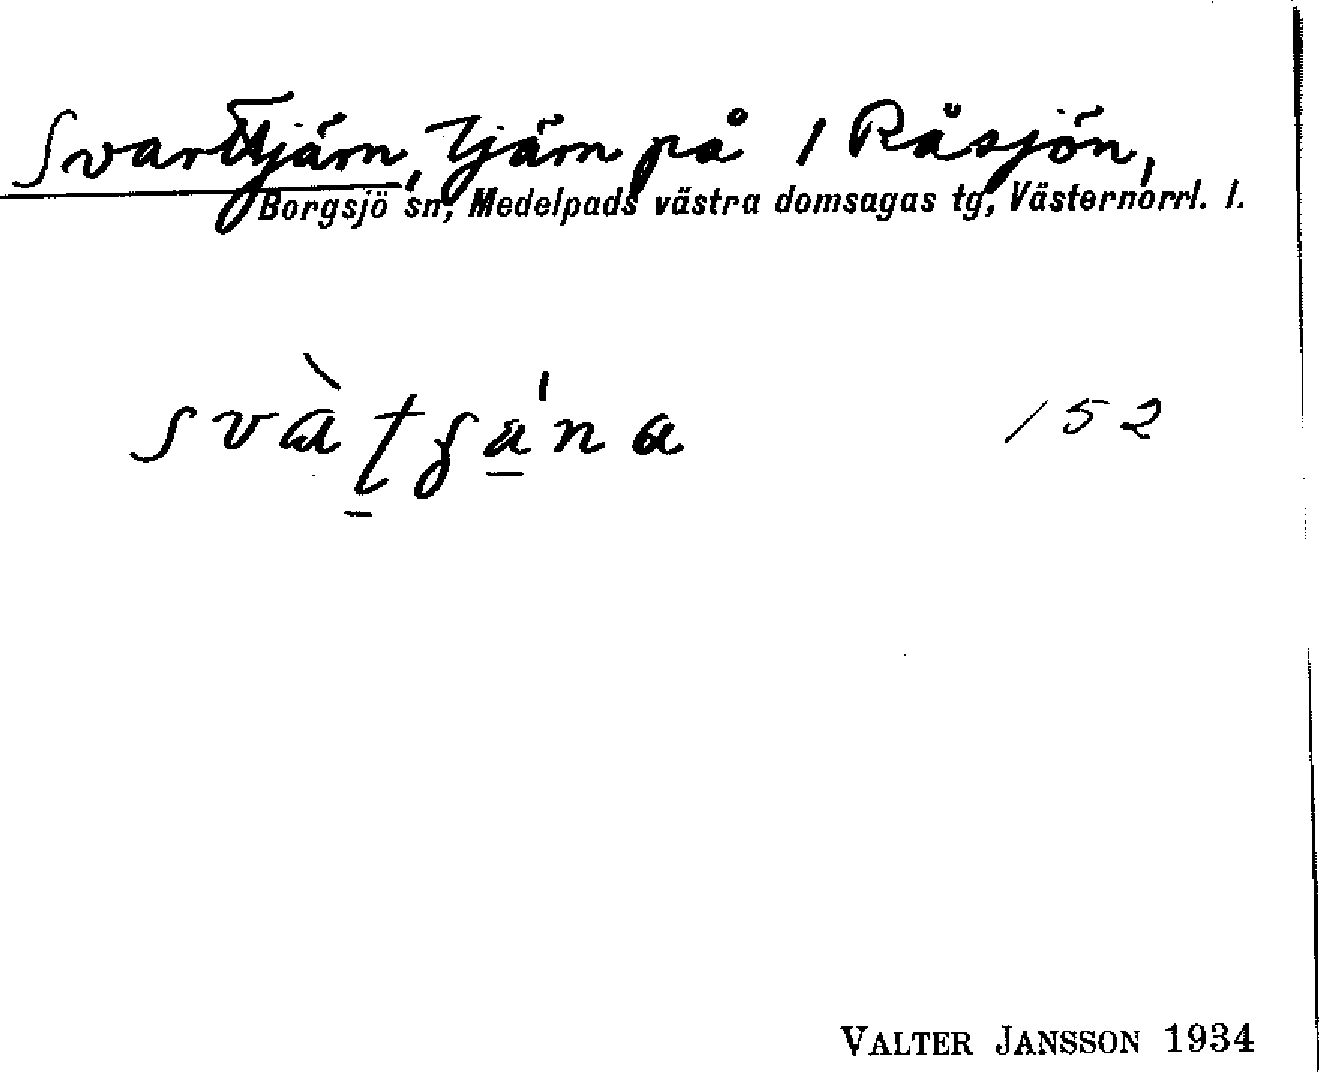 Svarttjärn, Tjärn på 1 Råsjön,
Borgsjö sn, Medelpads västra domsagas tg, Västernorrl. l.
152
VALTER JANSSON 1934